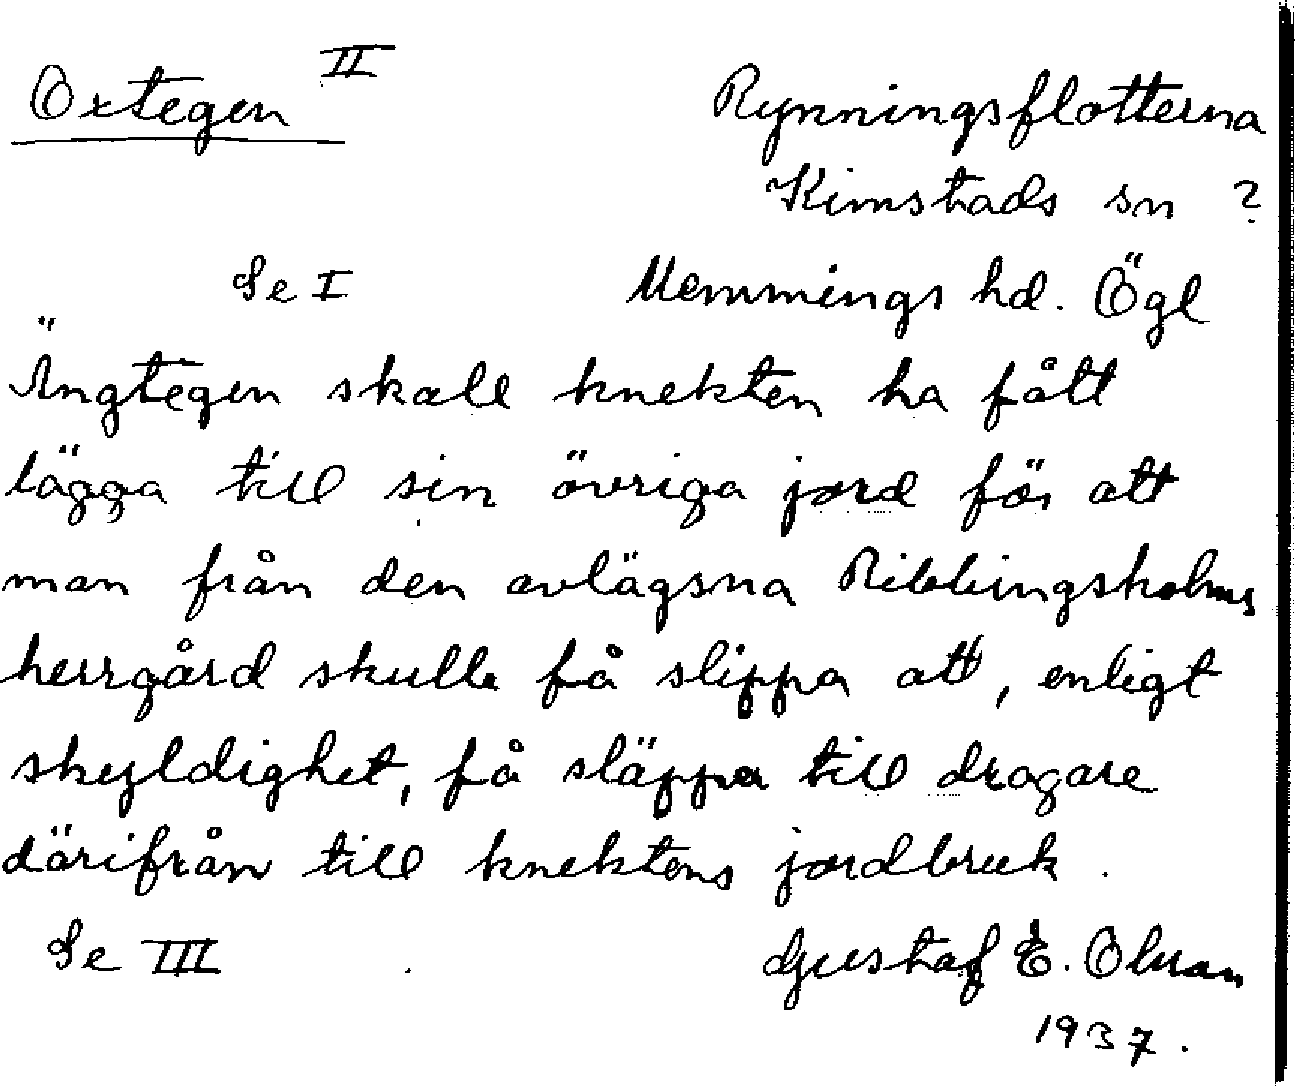 Oxtegen II Rynningsflotterna
Kimstads sn ?
Se I Memmings hd. Ögl
Ängtegen skall knekten ha fått
lägga till sin övriga jord för att
man från den avlägsna Ribbingsholms
herrgård skulle få slippa att, enligt
skyldighet, få släppa till dragare
därifrån till knektens jordbruk.
Se III Gustaf E. Olsson
1937.